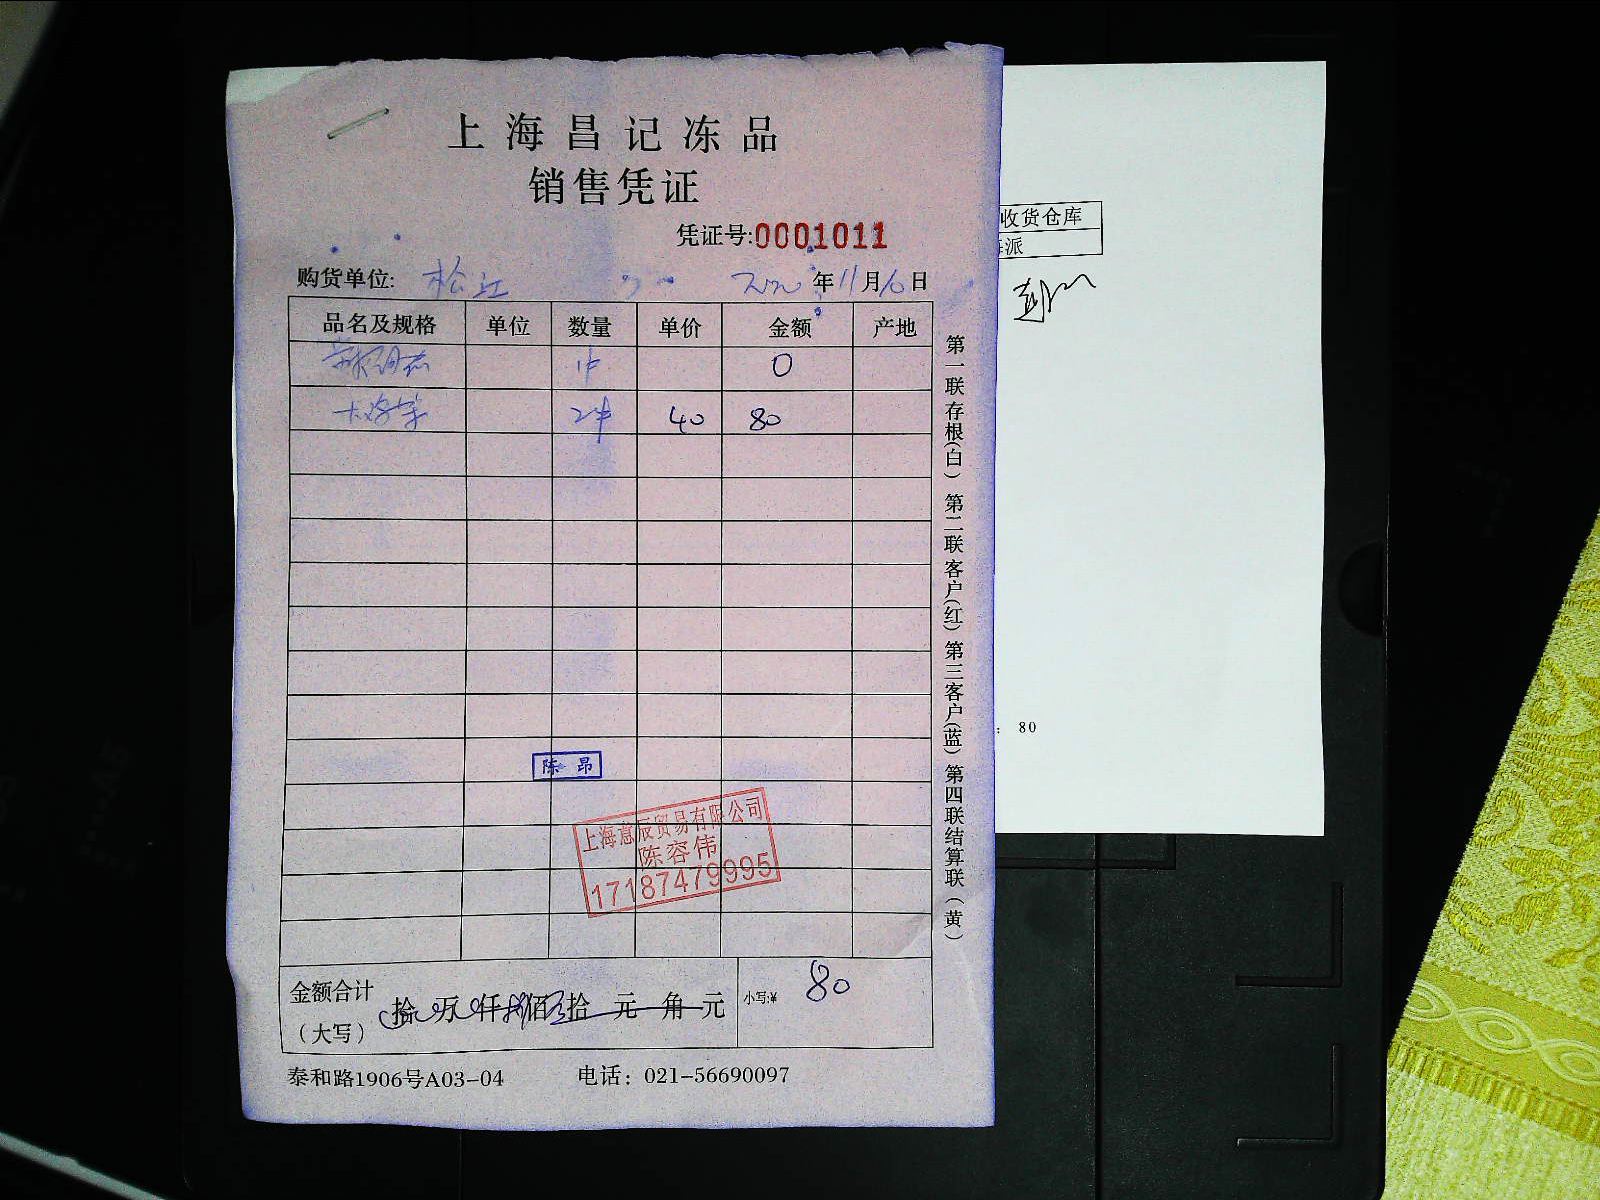 上海昌记冻品
销售凭证
凭证号:0001011
购货单位: 松江 年11月 日
品名及规格 单位 数量 单价 金额 产地
0
40 80
第一联存根(白) 第二联客户(红) 第三客户(蓝) 第四联结算联(黄)
陈昂
上海意辰贸易有限公司
陈容伟
17187479995
金额合计
(大写)
拾 万 仟 佰 拾 元 角 元
小写:¥ 80
泰和路1906号A03-04 电话: 021-56690097
收货仓库
派
: 80